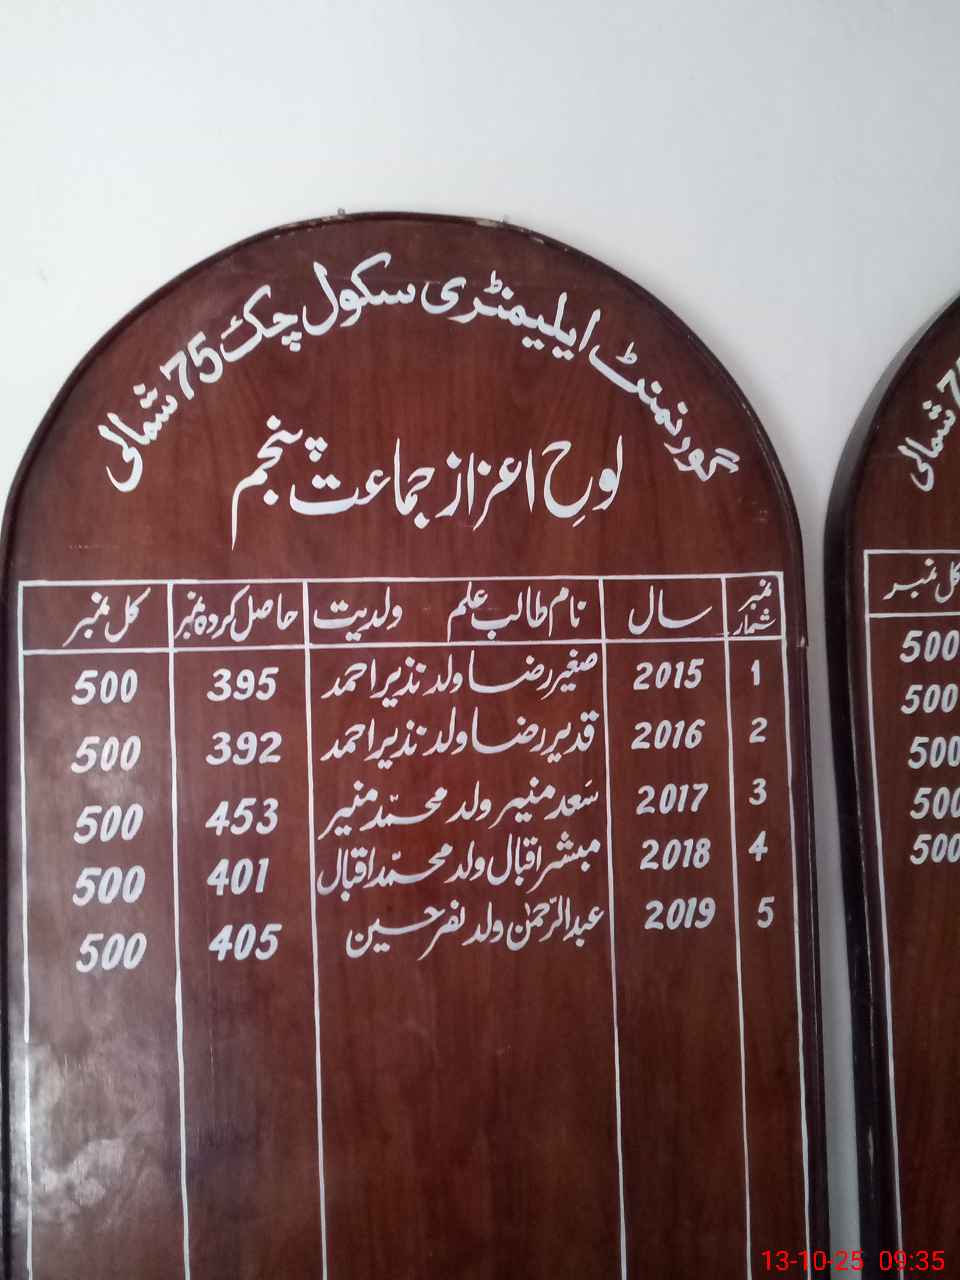 گورنمنٹ ایلیمنٹری سکول چک 75 شمالی
لوحِ اعزاز جماعت پنجم
نمبر شمار سال نام طالب علم ولدیت حاصل کردہ نمبر کل نمبر
1 2015 صغیر رضا ولد نذیر احمد 395 500
2 2016 قدیر رضا ولد نذیر احمد 392 500
3 2017 سَعد منیر ولد محمّد منیر 453 500
4 2018 مبشر اقبال ولد محمّد اقبال 401 500
5 2019 عبدالرّحمٰن ولد ظفر حسین 405 500
75 شمالی
کل نمبر
500
500
500
500
500
13-10-25 09:35